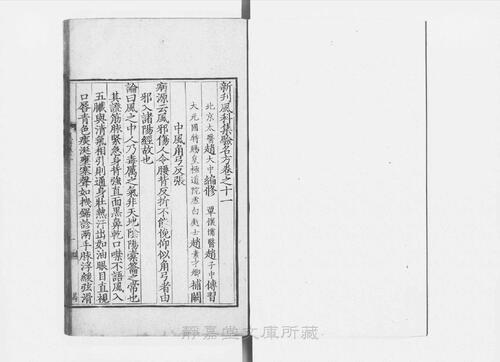 新刊風科集驗名方卷之十一
北京太醫趙大中編修 覃懷儒醫趙子中傳習
大元國特賜皇極道院虛白處士趙素才卿補闕
中風角弓反張
病源云風邪傷人令腰背反折不能俛仰似角弓者由
邪入諸陽經故也
論曰風之中人乃毒厲之氣非天地陰陽橐籥之常也
其證筋脉緊急身背強直面黑鼻乾口噤不語風入
五臟與清氣相引則通身壯熱汗出如油眼目直視
口唇青色痰涎壅塞聲如拽鋸診两手脉浮緩弦滑
靜嘉堂文庫所藏